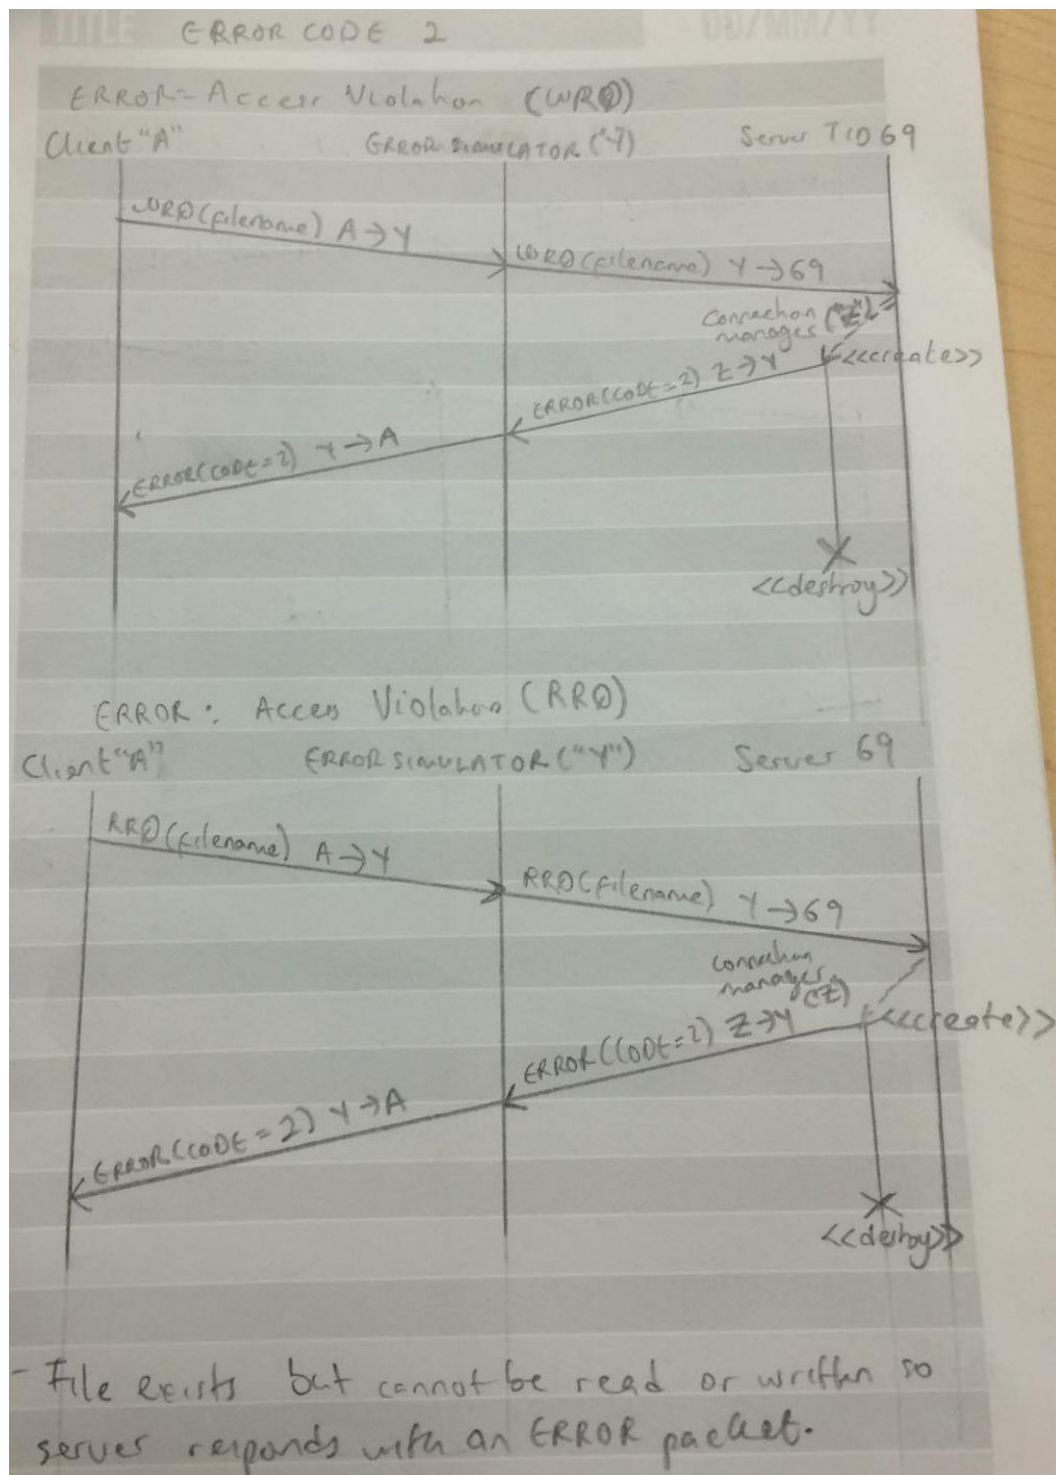 TITLE
YY/MM/DD
ERROR CODE 2
ERROR - Access Violation (WRQ)
Client "A" ERROR SIMULATOR ("Y") Server TID 69
WRQ(filename) A→Y
WRQ(filename) Y→69
Connection
manager ("Z")
<<create>>
ERROR(CODE=2) Z→Y
ERROR(CODE=2) Y→A
<<destroy>>
ERROR: Access Violation (RRQ)
Client "A" ERROR SIMULATOR ("Y") Server 69
RRQ(filename) A→Y
RRQ(filename) Y→69
connection
manager
(Z)
<<create>>
ERROR(CODE=2) Z→Y
ERROR(CODE=2) Y→A
<<destroy>>
- File exists but cannot be read or written so
server responds with an ERROR packet.